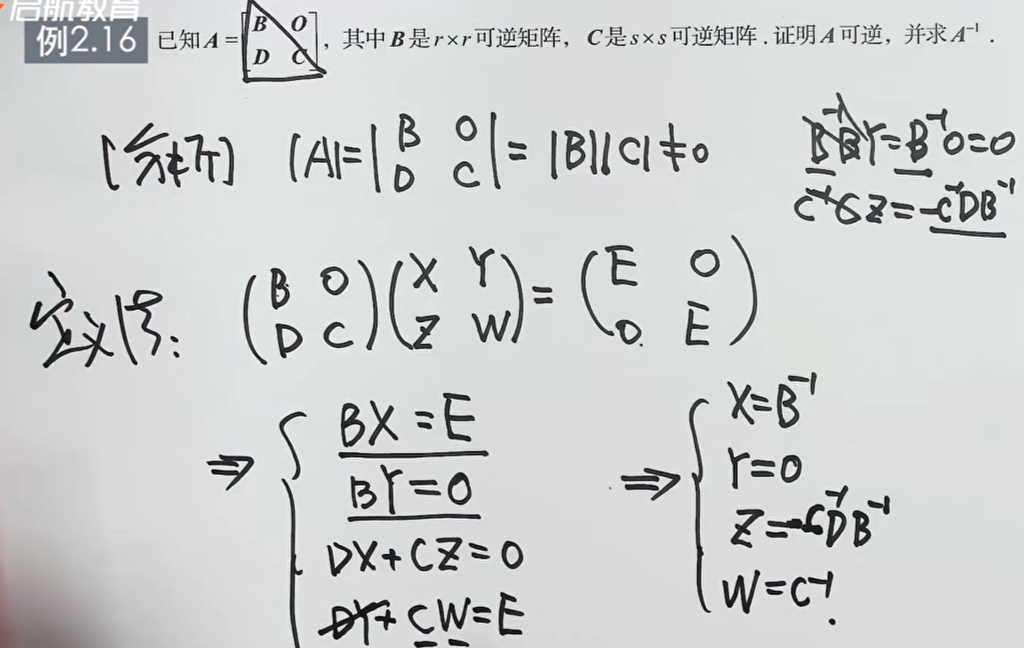 启航教育
例2.16 已知A=[B O; D C], 其中B是r×r可逆矩阵, C是s×s可逆矩阵.证明A可逆,并求A⁻¹.
[分析] |A|=|B O; D C|=|B||C|≠0
B⁻¹BY=B⁻¹0=0
C⁻¹CZ=-C⁻¹DB⁻¹
定义法:
(B O; D C)(X Y; Z W)=(E O; O. E)
⇒ { BX=E
BY=0
DX+CZ=0
DY+CW=E
⇒ { X=B⁻¹
Y=0
Z=-C⁻¹DB⁻¹
W=C⁻¹.